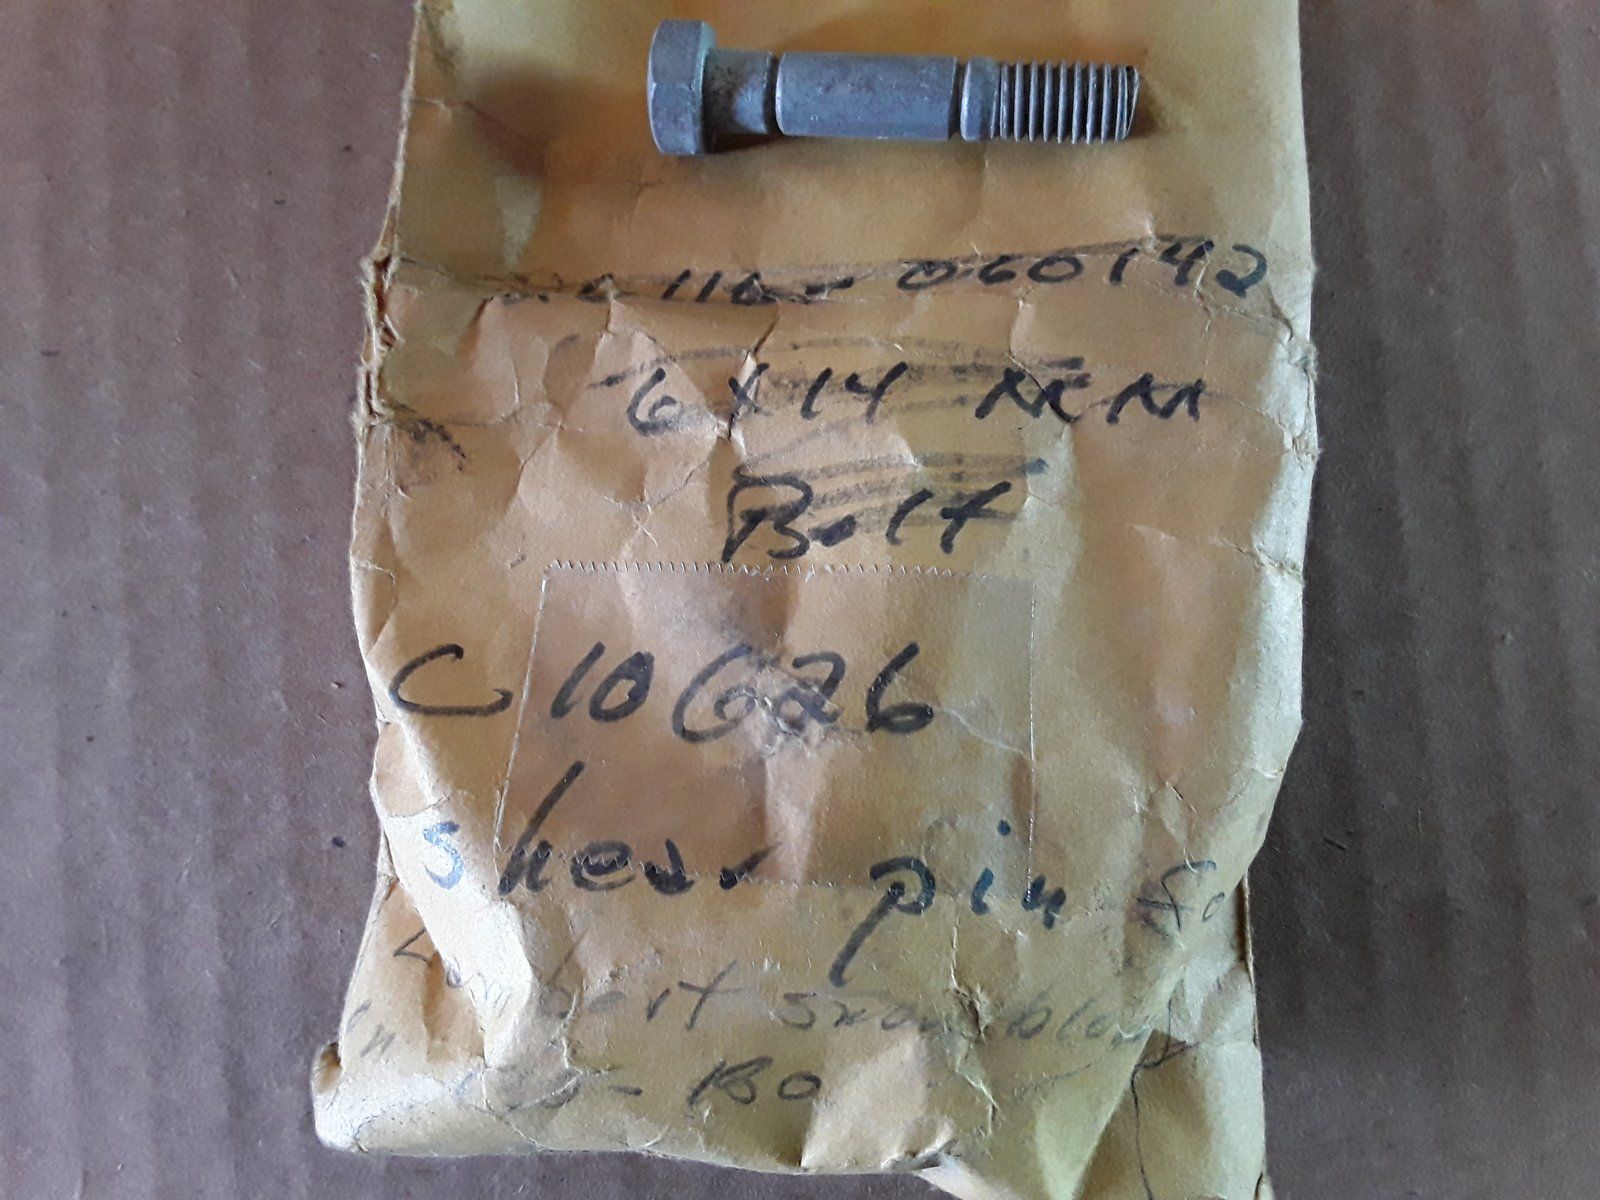 116-060142
6 X 14 MM
Bolt
C10626
shear pin fo
Lambert snowblow
in